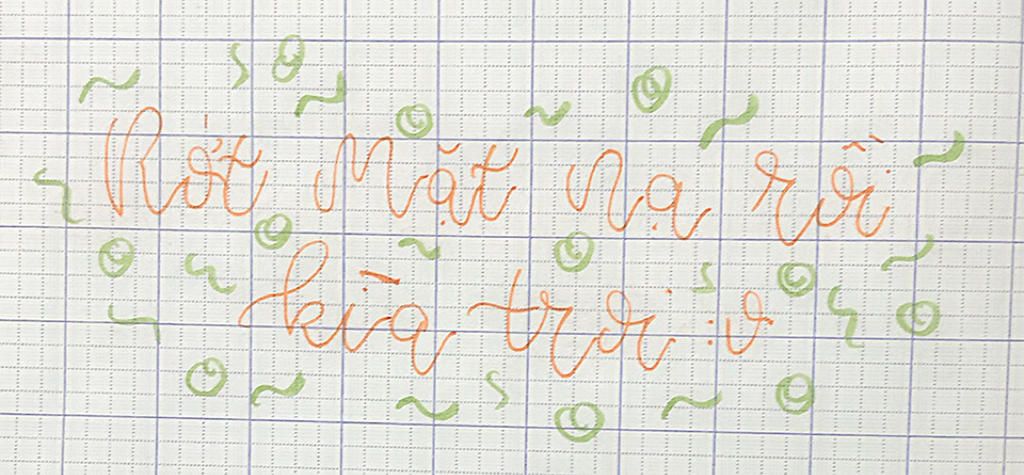 Rớt Mặt Nạ rồi
kìa trời :v